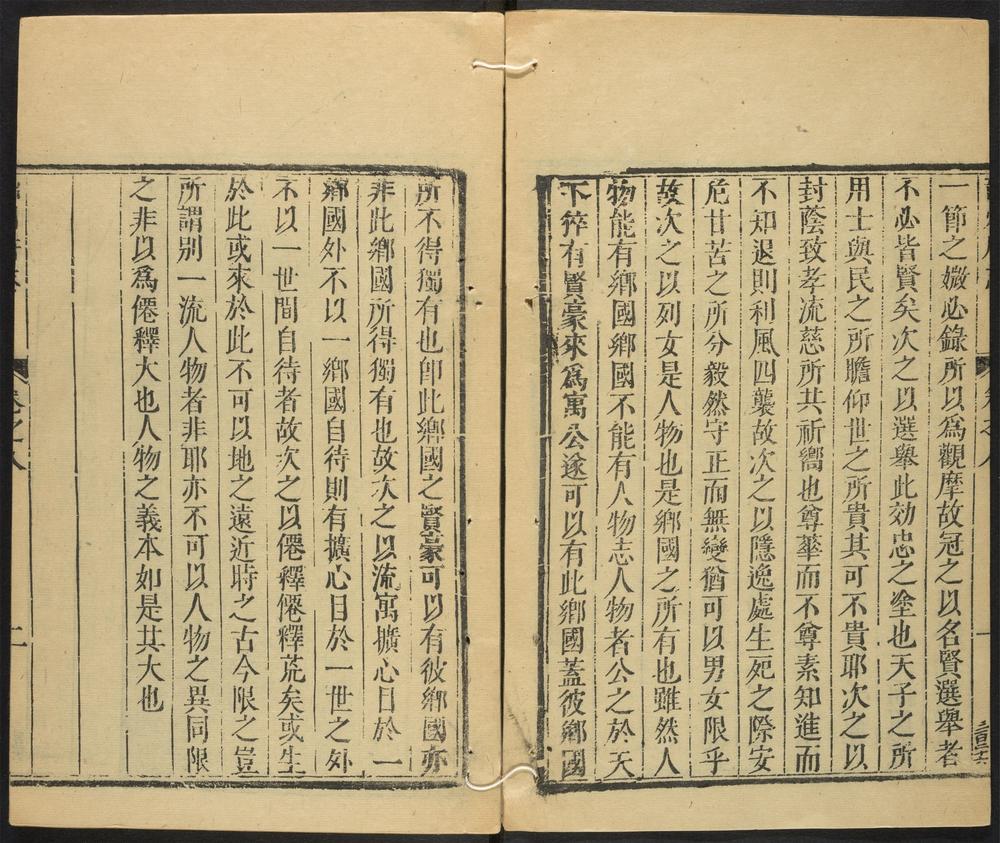 一節之媺必錄所以爲觀摩故冠之以名賢選舉者
不必皆賢矣次之以選舉此効忠之塗也天子之所
用士與民之所瞻仰世之所貴其可不貴耶次之以
封蔭致孝流慈所共祈嚮也尊華而不尊素知進而
不知退則利風四襲故次之以隱逸處生死之際安
危甘苦之所分毅然守正而無變猶可以男女限乎
故次之以列女是人物也是鄉國之所有也雖然人
物能有鄉國鄉國不能有人物志人物者公之於天
下猝有賢豪來爲寓公遂可以有此鄉國蓋彼鄉國
所不得獨有也卽此鄉國之賢豪可以有彼鄉國亦
非此鄉國所得獨有也故次之以流寓擴心目於一
鄉國外不以一鄉國自待則有擴心目於一世之外
不以一世間自待者故次之以僊釋僊釋荒矣或生
於此或來於此不可以地之遠近時之古今限之豈
所謂別一流人物者非耶亦不可以人物之異同限
之非以爲僊釋大也人物之義本如是其大也
卷之八
二